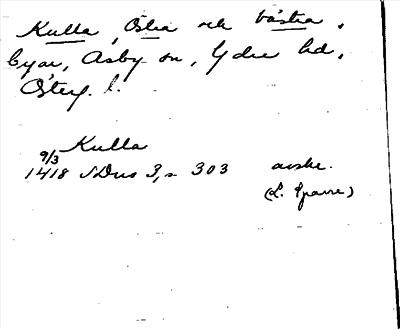 Kulla, Östra och Västra,
byar, Asby sn, Ydre hd,
Österg. l.
Kulla
9/3
1418 SDns 3, s 303 avskr.
(L. Sparre)